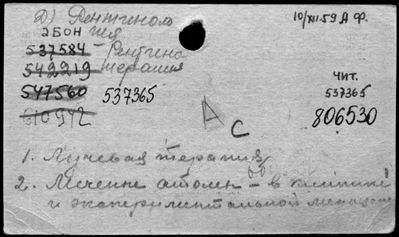 2) Рентгиноло
гия
ЭБОН
10/XII.59 А Ф.
537584 - Рентгино
542219 терапия
547560 537365
610972
ЧИТ.
537365
806530
А
С
1. Лучевая терапия
2. Мечение атомы - в клинике
и экспериментальной медицине